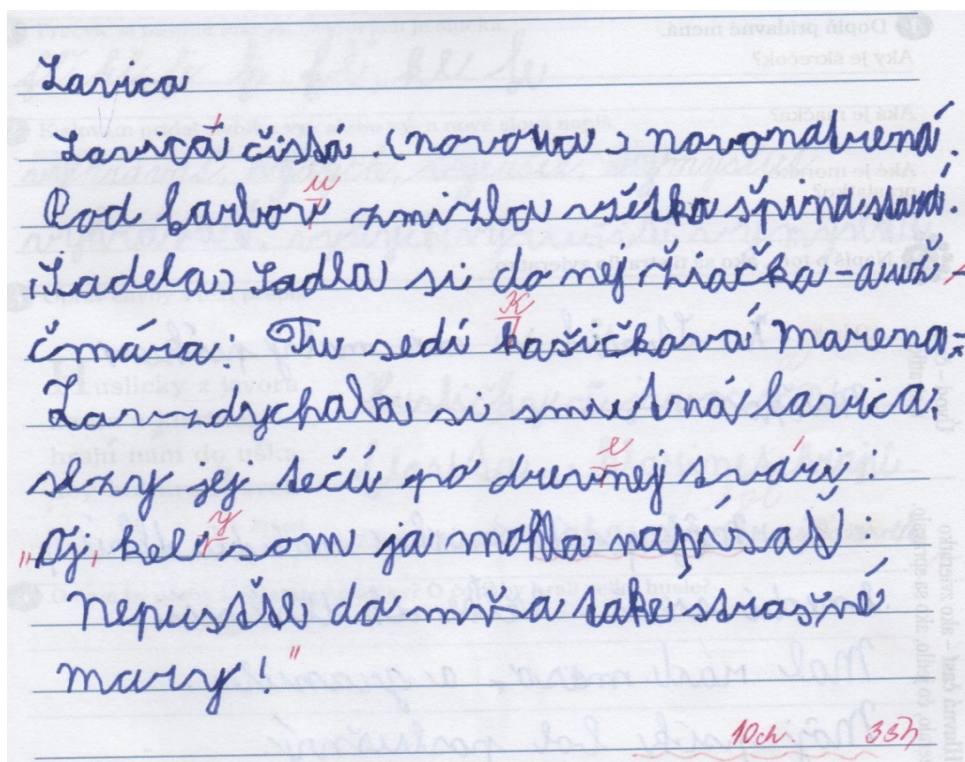 Lavica
Lavica čistá (novotva) novonatrená
Pod farbou zmizla všetka špina stará.
(Ladela) Sadla si do nej žiačka - a už
čmára: Tu sedí Kašičková Marena.
Zavzdychala si smutná lavica,
slzy jej tečú po drevnej tvári:
„Oj, keby som ja mohla napísať:
Nepustite do mňa také strašné
mary!"
10ch. 33h